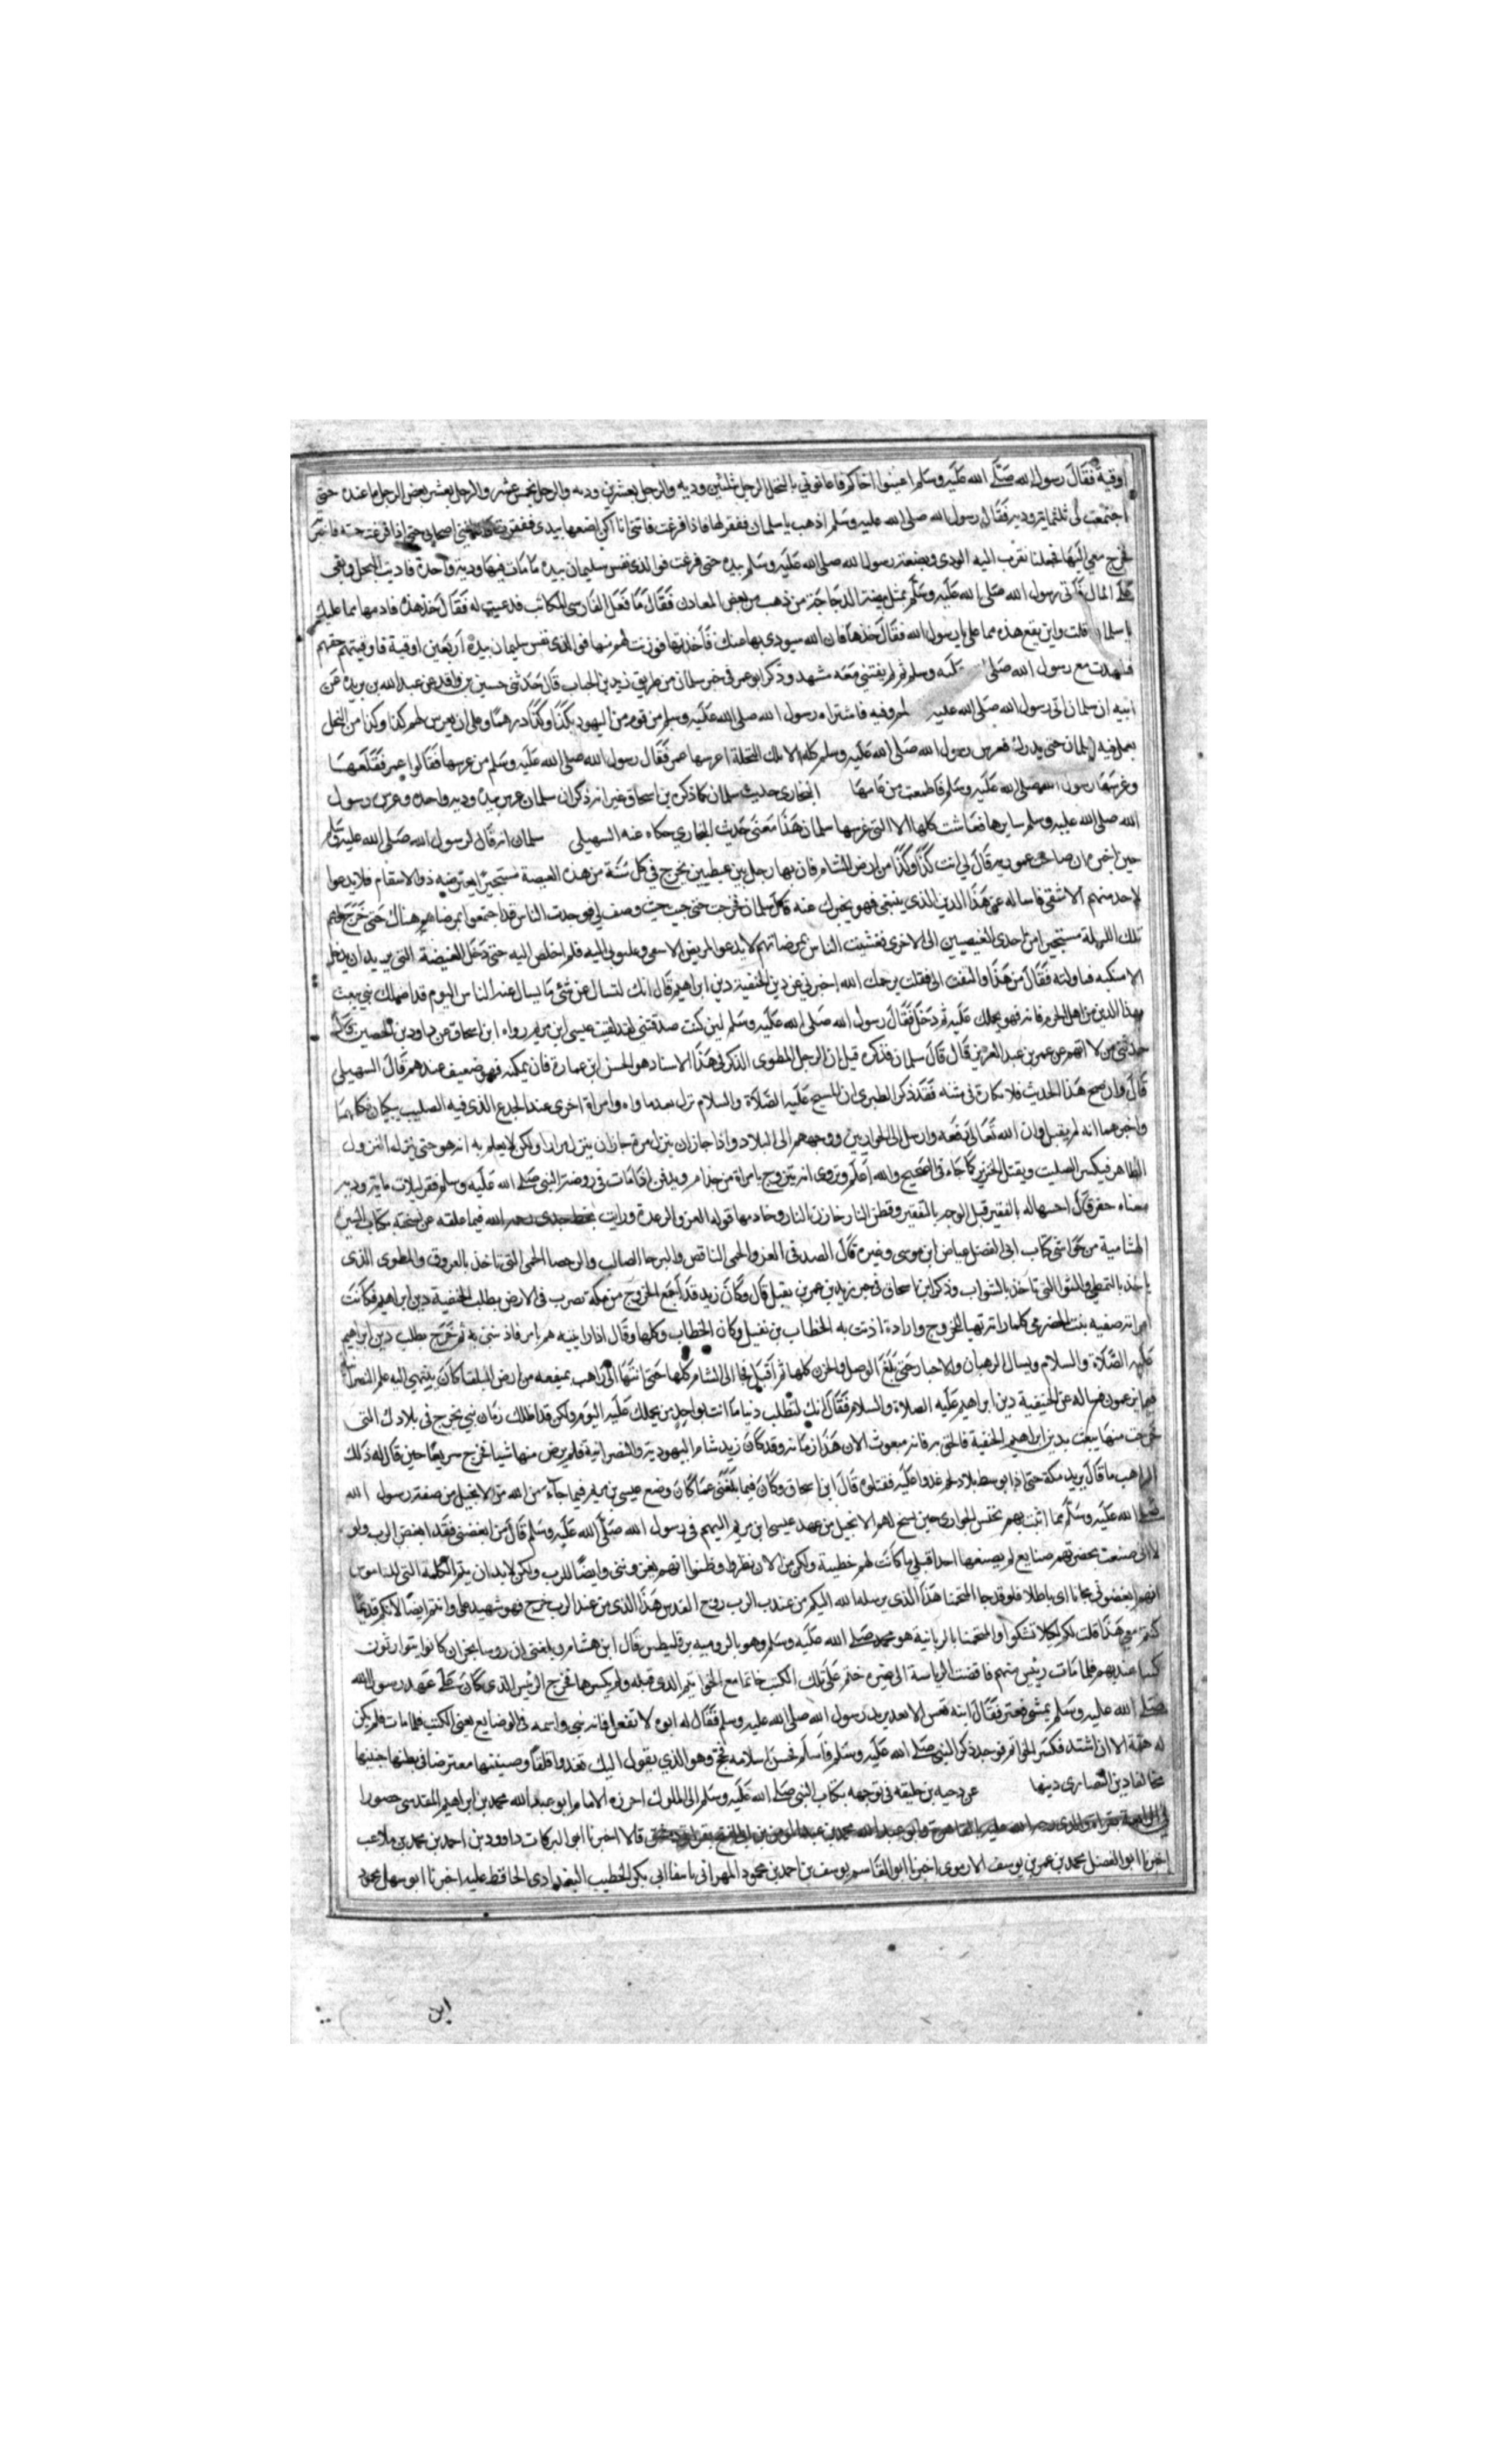 اوقية فقال رسول الله صلى الله عليه وسلم اعينوا اخاكم فاعانوني بالنخل الرجل بثلثين وديه والرجل بعشرين وديه والرجل بخمس عشر والرجل بعشر يعين الرجل ما عنده حتى
اجتمعت لي ثلثماية وديه فقال رسول الله صلى الله عليه وسلم اذهب يا سلمان ففقر لها فاذا فرغت فاتني انا اكن اضعها بيدي ففقرت اصحابي حتى اذا فرغت جئته فاخبرته
فخرج معي اليها فجعلنا نقرب اليه الودي ويضعه رسول الله صلى الله عليه وسلم بيده حتى فرغت فوالذي نفس سليمان بيده ما ماتت فيها ودية واحدة فاديت النخل وبقى
على المال فاتى رسول الله صلى الله عليه وسلم بمثل بيضة الدجاجة من ذهب من بعض المعادن فقال ما فعل الفارسي المكاتب فدعيت له فقال خذ هذه فادها مما عليك
يا سلمان قلت واين تقع هذه مما علي يا رسول الله فقال خذها فان الله سيودي بها عنك فاخذتها فوزنت لهم منها فوالذي نفس سليمان بيده اربعين اوقية فاوفيتهم حقهم
فشهدت مع رسول الله صلى عليه وسلم ثم لم يفتني معه مشهد وذكر ابو عمر في خبر سلمان من طريق زيد بن الحباب قال حدثني حسين بن واقد عن عبد الله بن بريده عن
ابيه ان سلمان اتى رسول الله صلى الله عليه فاشتراه رسول الله صلى الله عليه وسلم من قوم من اليهود بكذا وكذا درهما وعلى ان يغرس لهم كذا وكذا من النخل
يعمل فيه سلمان حتى يدرك فغرس رسول الله صلى الله عليه وسلم كله الا تلك النخلة اغرسها عمر فقال رسول الله صلى الله عليه وسلم من غرسها فقالوا عمر فقلعها
وغرسها رسول الله صلى الله عليه وسلم فاطعمت من عامها البخاري حديث سلمان كما ذكره بن اسحاق غير انه ذكر ان سلمان غرس بيده وديه واحده وغرس رسول
الله صلى الله عليه وسلم سايرها فعاشت كلها الا التي غرسها سلمان هذا معنى حديث البخاري حكاه عنه السهيلي سلمان انه قال لرسول الله صلى الله عليه وسلم
حين اخبره ان صاحب عموريه قال لي ائت كذا وكذا من ارض الشام فان بها رجل بين غيضتين يخرج في كل سنة من هذه الغيضة مستجيزا يعترضه ذوالاسقام فلا يدعوا
لاحد منهم الا شفي فاساله عن هذا الدين الذي يبتغي فهو يخبرك عنه قال سلمان فخرجت حتى جيت حيث وصف لي فوجدت الناس قد اجتمعوا بمرضاهم هناك حتى خرج لهم
تلك الليلة مستجيزا من احدى الغيضتين الى الاخرى فغشيت الناس بمرضاتهم لا يدعو لمريض الا شفي وغلبوني اليه فلم اخلص اليه حتى دخل الغيضة التي يريد ان يدخل
الا منكبه فتناولته فقال من هذا والتفت الي فقلت يرحمك الله اخبرني عن دين الحنفية دين ابراهيم قال انك لتسال عن شي ما يسال عنه الناس اليوم قد اضلك نبي يبعث
بهذا الدين من اهل الحرم فاته فهو يحملك عليه ثم دخل فقال رسول الله صلى الله عليه وسلم لين كنت صدقتني لقد لقيت عيسى ابن مريم رواه ابن اسحاق عن داود بن الحصين قال
حدثني من لا اتهم عن عمر بن عبد العزيز قال قال سلمان فذكره قيل ان الرجل المطوي الذكر في هذا الاسناد هو الحسن ابن عمارة فان يكنه فهو ضعيف عندهم قال السهيلي
قال وان صح هذا الحديث فلا نكارة في متنه فقد ذكر الطبري ان المسيح عليه الصلاة والسلام نزل بعدما واه وامراة اخرى عند الجذع الذي فيه الصليب يبكيان فكلهما
واخبرهما انه لم يقتل وان الله تعالى رفعه وارسل الى الحواريين ووجههم الى البلاد واذا جاز ان ينزل مرة جاز ان ينزل مرارا ولكن لا يعلم به انه هو حتى ينزل النزول
الظاهر فيكسر الصليب ويقتل الخنزير كما جاء في الصحيح والله اعلم ويروى انه يتزوج بامراة من جذام ويدفن اذا مات في روضة النبي صلى الله عليه وسلم فقر لثلاث ماية وديه
معناه حفر قال احسبها له بالفقير قبل الوجه بالتفقير وقطن النار خازن النار وخادمها قوله العز والرعدة ورايت بخط جدي رحمه الله فيما علقه عن نسخته بكتاب السيرة
الهشامية من حواشي كتاب ابي الفضل عياض ابن موسى وغيره قال الصدفي العز والحمى الناقض والبرحا الصالب والرحضا الحمى التي تاخذ بالعروق والمطوى الذي
ياخذ بالتمطي والثوبا التي تاخذ بالتثواب وذكر ابن اسحاق في خبر زيد بن عمر بن نفيل قال وكان زيد قد اجمع الخروج من مكة تضرب في الارض يطلب الحنفية دين ابراهيم فكانت
امراته صفيه بنت الحضرمي كلما راته تهيا للخروج واراده اذنت به الخطاب بن نفيل وكان الخطاب وكلها وقال اذا رايته هم بامر فاذنيني به ثم خرج يطلب دين ابراهيم
عليه الصلاة والسلام ويسال الرهبان والاحبار حتى بلغ الموصل والجزيره كلها ثم اقبل فجا الى الشام كلها حتى انتها الى راهب بميفعه من ارض البلقا كان ينتهي اليه علم النصرانيه
فيما يزعمون فساله عن الحنيفية دين ابراهيم عليه الصلاة والسلام فقال انك لتطلب دنيا ما انت بواجد من يحملك عليه اليوم ولكن قد اظلك زمان نبي يخرج في بلادك التي
خرجت منها يبعث بدين ابراهيم الحنفية فالحق به فانه مبعوث الان هذا زمانه وقد كان زيد شام اليهودية والنصرانية فلم يرض منها شيا فخرج سريعا حين قال له ذلك
الراهب ما قال يريد مكة حتى اذا توسط بلاد لخم عدوا عليه فقتلوه قال ابن اسحاق وكان فيما بلغني عما كان وضع عيسى بن مريم فيما جآه من الله من الانجيل من صفة رسول الله
صلى الله عليه وسلم مما اثبت لهم يحنس الحواري حين نسخ لهم الانجيل من عهد عيسى ابن مريم اليهم في رسول الله صلى الله عليه وسلم قال من ابغضني فقد ابغض الرب ولو
لا اني صنعت بحضرتهم صنايع لم يصنعها احد قبلي ما كانت لهم خطيئة ولكن من الان بطروا وظنوا انهم يعزونني وايضا للرب ولكن لا بد ان يتم الكلمة التي في الناموس
انهم ابغضوني مجانا اي باطلا فلو قد جا المنحمنا هذا الذي يرسله الله اليكم من عند الرب روح القدس هذا الذي من عند الرب خرج فهو شهيد علي وانتم ايضا لانكم قديما
كنتم معي هذا قلت لكم لكيلا تشكوا والمنحمنا بالسريانية هو محمد صلى الله عليه وسلم وهو بالروميه برقليطس قال ابن هشام وبلغني ان روسا نجران كانوا يتوارثون
كتبا عندهم فلما مات رئيس منهم فاقضت الرياسة الى غيره ختم على تلك الكتب خاتما مع الخواتيم الذي قبله ولم يكسرها فخرج الرئيس الذي كان على عهد رسول الله
صلى الله عليه وسلم يمشي فعثر فقال ابنه تعس الابعد يريد رسول الله صلى الله عليه وسلم فقال له ابوه لا تفعل فانه نبي واسمه في الوضايع يعني الكتب فلما مات فلم يكن
له همة الا ان اشتد فكسر الخواتم فوجد ذكر النبي صلى الله عليه وسلم فاسلم فحسن اسلامه فحج وهو الذي يقول اليك تغدوا قلقا وضينها معترضا في بطنها جنينها
مخالفا دين النصارى دينها عن دحيه بن خليفه في توجهه بكتاب النبي صلى الله عليه وسلم الى الملوك اخبره الامام ابو عبد الله محمد بن ابراهيم المقدسي حضورا
في الرابعة بقراة والدي رحمه الله عليه بالقاهرة وابو عبد الله محمد بن عبد المومن بن ابي الفتح بقراتي بدمشق قالا اخبرنا ابو البركات داوود بن احمد بن محمد بن ملاعب
اخبرنا ابو الفضل محمد بن عمر بن يوسف الارموي اخبرنا ابو القاسم يوسف بن احمد بن محمود المهراني باسفا ابي بكر الخطيب البغدادي الحافظ عليه اخبرنا ابو سهل محمود
ابن